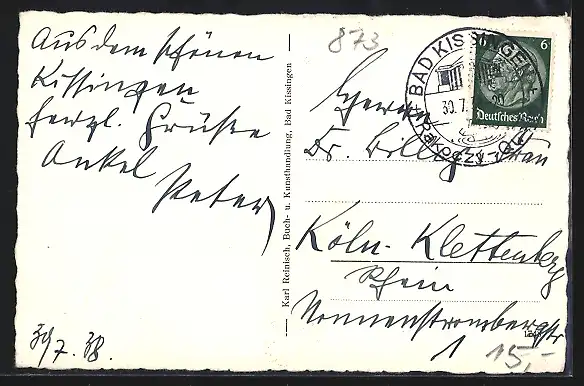 Aus dem schönen
Kissingen
herzl. Grüße
Onkel
Peter
30/7. 38.
Karl Reinisch, Buch- u. Kunsthandlung, Bad Kissingen
873
BAD KISSINGEN
30.7.
Rakoczy
6
Deutsches Reich
Herrn
Dr. Billig u. Frau
Köln-Klettenberg
Rhein
Nonnenstrombergstr
1
15,-